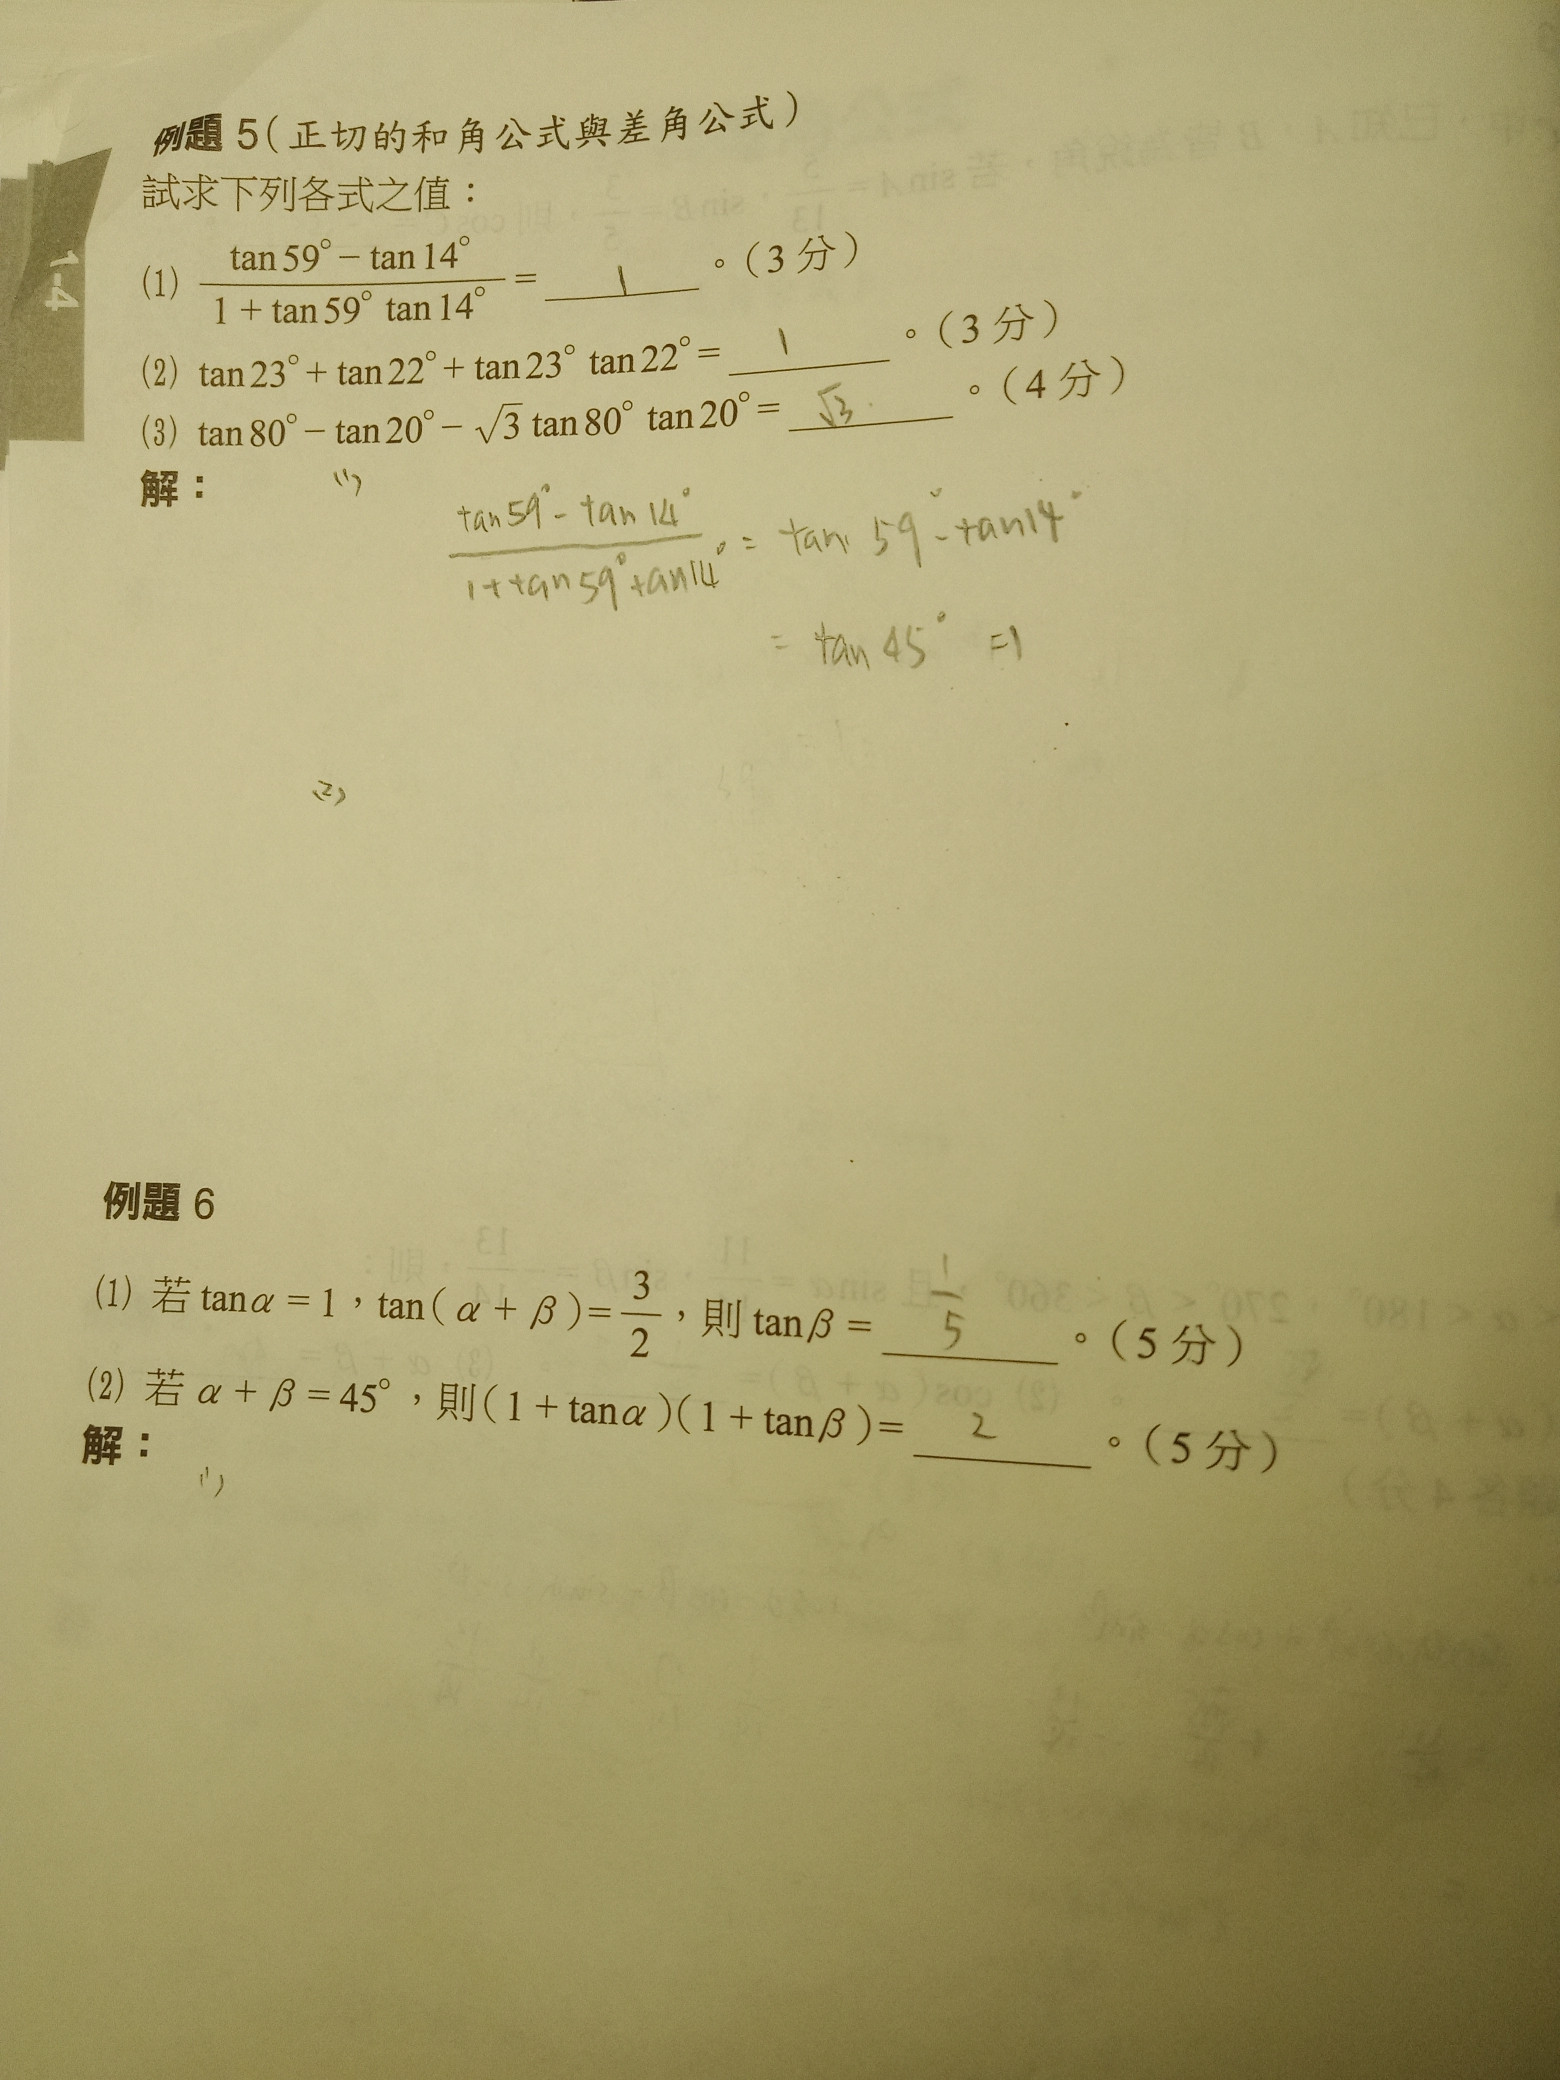 例題 5(正切的和角公式與差角公式)
試求下列各式之值：
1-4
(1) \frac{tan59° − tan14°}{1 + tan59° tan14°} = 1 。(3分)
(2) tan23° + tan22° + tan23° tan22° = 1 。(3分)
(3) tan80° − tan20° − √3 tan80° tan20° = √3 。(4分)
解：
(1)
\frac{tan59° − tan14°}{1 + tan59° tan14°} = tan 59° − tan14°
= tan 45° = 1
(2)
例題 6
(1) 若 tanα = 1，tan(α + β) = \frac{3}{2}，則 tanβ = \frac{1}{5} 。(5分)
(2) 若 α + β = 45°，則(1 + tanα)(1 + tanβ) = 2 。(5分)
解：
(1)